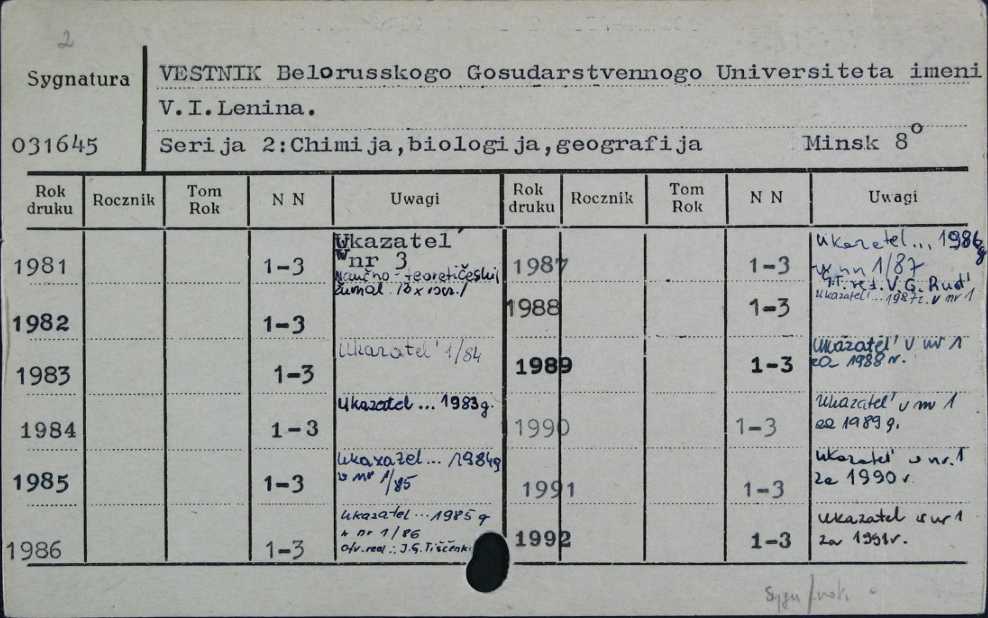 2
Sygnatura
VESTNIK Belorusskogo Gosudarstvennogo Universiteta imeni
V.I.Lenina.
031645
Serija 2:Chimija,biologija,geografija Minsk 8o
Rok druku Rocznik Tom Rok N N Uwagi Rok druku Rocznik Tom Rok N N Uwagi
1981 1-3 Ukazatel'
w nr 3
naučno-teoretičeskij
žurnal
1982 1-3
1983 1-3 Ukazatel' 1/84
1984 1-3 Ukazatel ... 1983g.
1985 1-3 Ukazatel... 1984g
w nr 1/85
1986 1-3 Ukazatel ... 1985 g
w nr 1/86
Otv. red.: J.G.Tiščenko
1987 1-3 Ukazatel ... 1986g
w nr 1/87
Gł. red. V.G. Rud'
1988 1-3 Ukazatel' ... 1987g. v nr 1
1989 1-3 Ukazatel' v nr 1
za 1988 r.
1990 1-3 Ukazatel' v nr 1
za 1989 g.
1991 1-3 Ukazatel' w nr. 1
za 1990 r
1992 1-3 Ukazatel w nr 1
za 1991r.